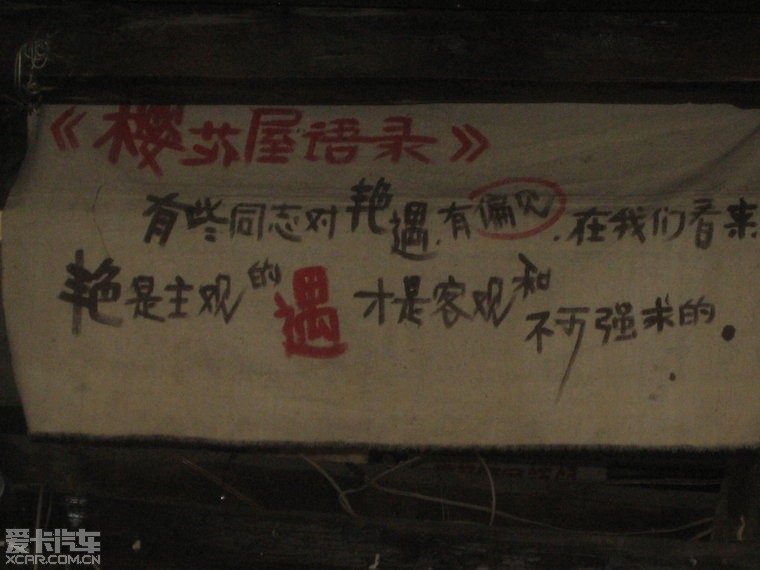 《樱花屋语录》
有些同志对艳遇.有偏见.在我们看来
艳是主观的遇才是客观和不可强求的.
爱卡汽车
XCAR.COM.CN